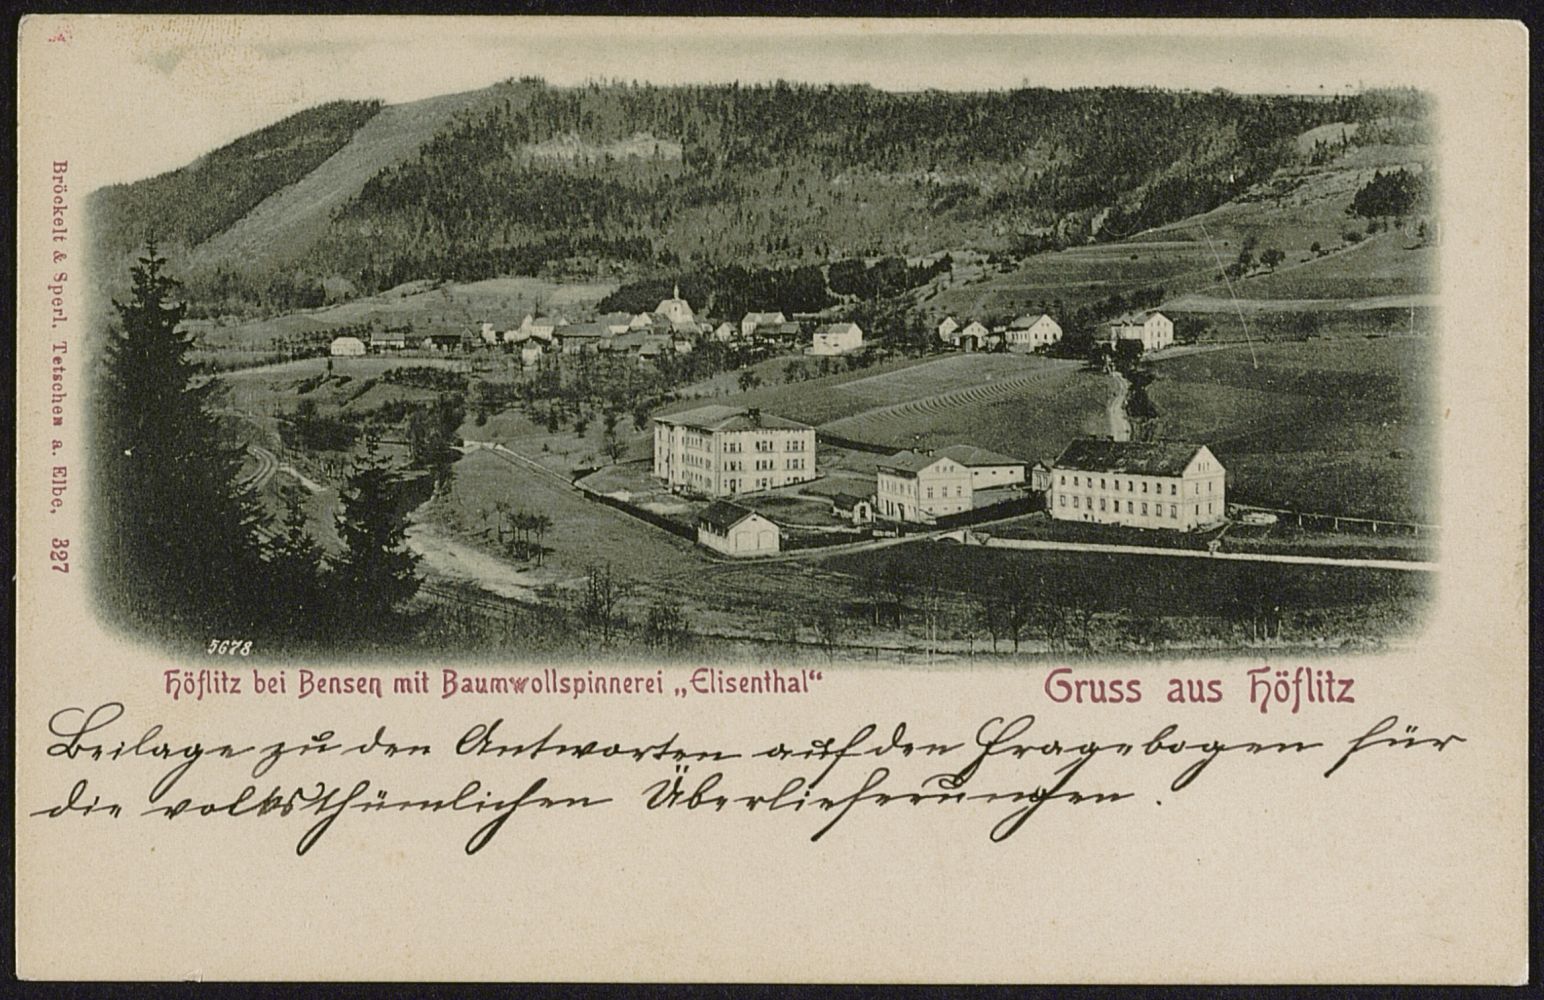 Bröckelt & Sperl. Tetschen a. Elbe, 327
5678
Höflitz bei Bensen mit Baumwollspinnerei „Elisenthal“
Gruss aus Höflitz
Beilage zu den Antworten auf den Fragebogen für
die volksthümlichen Überlieferungen.